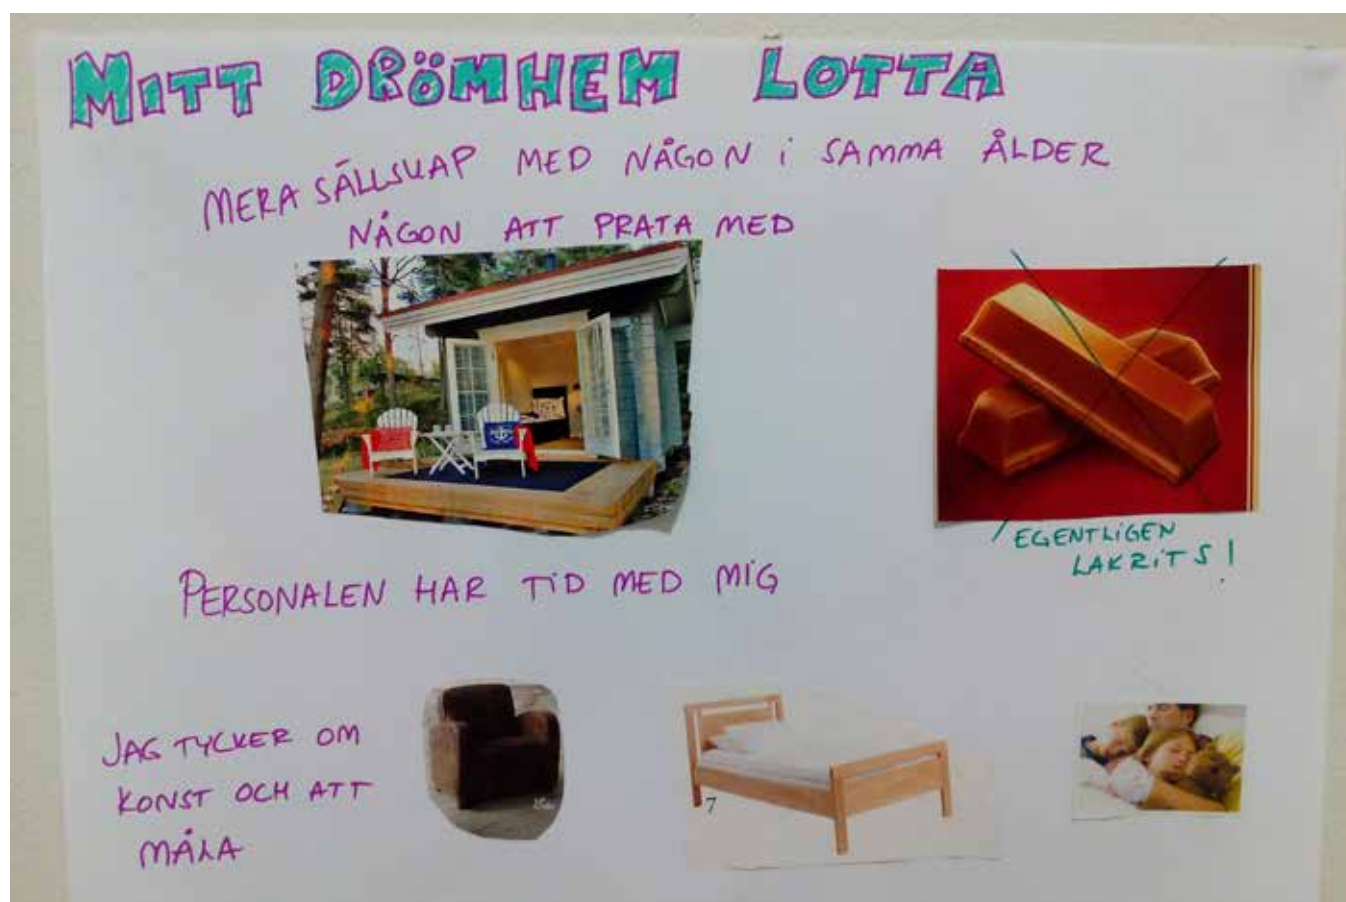 MITT DRÖMHEM LOTTA
MERA SÄLLSKAP MED NÅGON i SAMMA ÅLDER
NÅGON ATT PRATA MED
EGENTLiGEN
LAKRiTS!
PERSONALEN HAR TiD MED MiG
JAG TYCKER OM
KONST OCH ATT
MÅLA
7